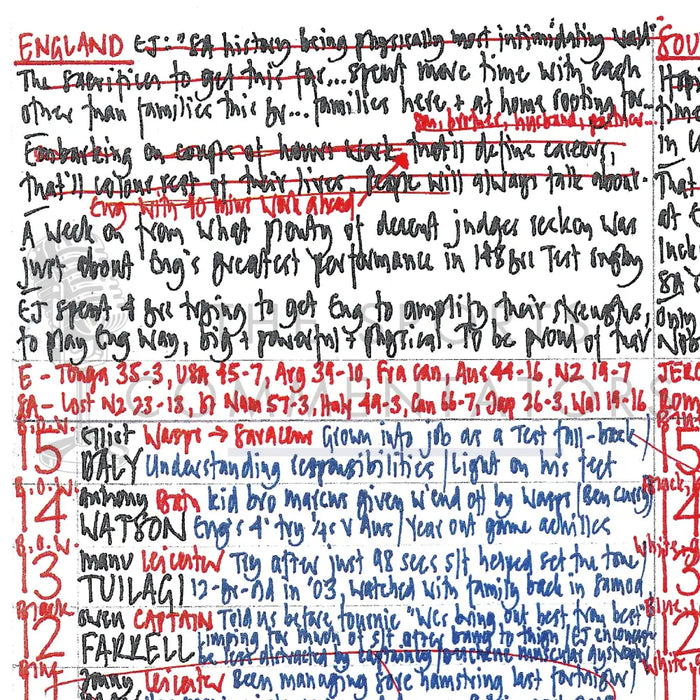 ENGLAND EJ: "SA history being physically most intimidating
The sacrifices to get this far... spent more time with each
other than families this yr... families here, + at home rooting for...
Son, brother, husband, partner...
Embarking on couple of hours work that'll define careers,
that'll colour rest of their lives. People will always talk about.
Eng with 40 mins work ahead
A week on from what plenty of decent judges reckon was
just about Eng's greatest performance in 148 yrs Test rugby
EJ spent 4 yrs trying to get Eng to amplify their strengths,
to play Eng way, big + powerful + physical. To be proud of their
E - Tonga 35-3, USA 45-7, Arg 39-10, Fra can, Aus 44-16, NZ 19-7
SA - Lost NZ 23-13, bt Nam 57-3, Italy 49-3, Can 66-7, Jap 26-3, Wal 19-16
THE SPORTS
COMMENTATORS
B.O.W.
15 Elliot Wasps → Saracens Grown into job as a Test full-back
DALY Understanding responsibilities / Light on his feet
B.O.W.
14 Anthony Bath Kid bro Marcus given w'end off by Wasps (Ben Curry)
WATSON Eng's 4' try ¼s v Aus / Year out game achilles
B.O.W.
13 Manu Leicester Try after just 98 secs s/f helped set the tone
TUILAGI 12-yr-old in '03, watched with family back in Samoa
Black
12 Owen CAPTAIN Told us before tournie "Wcs bring out best from best"
FARRELL Limping for much of s/f after bang to thigh / EJ
be less distracted by captaincy
Jonny Leicester Been managing sore hamstring last fortnight